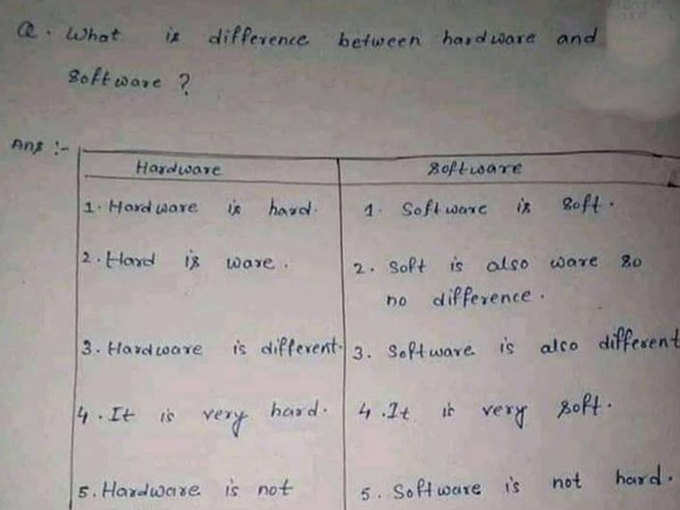 Q. What is difference between hardware and
Software ?
Ans :-
Hardware Software
1. Hardware is hard. 1. Software is soft.
2. Hard is ware. 2. Soft is also ware so
no difference.
3. Hardware is different. 3. Software is also different
4. It is very hard. 4. It is very soft.
5. Hardware is not 5. Software is not hard.